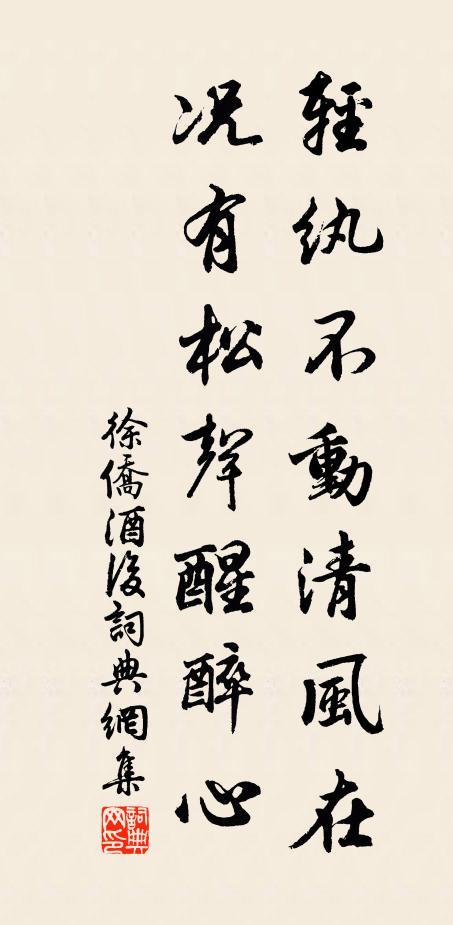 輕紈不動清風在
况有松聲醒醉心
徐僑酒後詞典網集
詞典網印